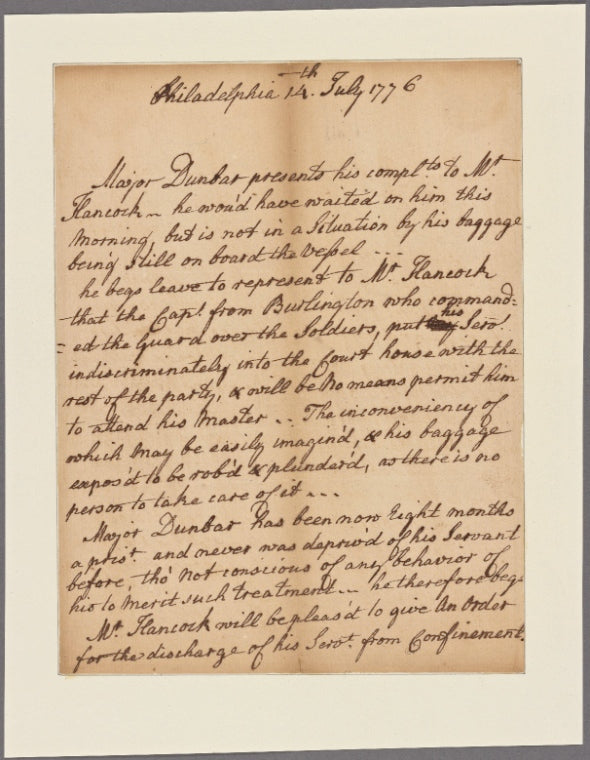 Philadelphia 14th. July 1776
Major Dunbar presents his complts to Mr
Hancock — he wou'd have waited on him this
Morning, but is not in a Situation by his baggage
being still on board the Vessel ...
he begs leave to represent to Mr Hancock
that the Capt. from Burlington who command=
=ed the Guard over the Soldiers, put his Servt.
indiscriminately into the Court house with the
rest of the party, & will be no means permit him
to attend his Master .. The inconveniency of
which may be easily imagin'd, & his baggage
expos'd to be rob'd & plunder'd, as there is no
person to take care of it ...
Major Dunbar has been now Eight months
a prisr. and never was depriv'd of his Servant
before, tho' not conscious of any behavior of
his to Merit such treatment ... he therefore begs
Mr. Hancock will be pleas'd to give An Order
for the discharge of his Servt. from Confinement.